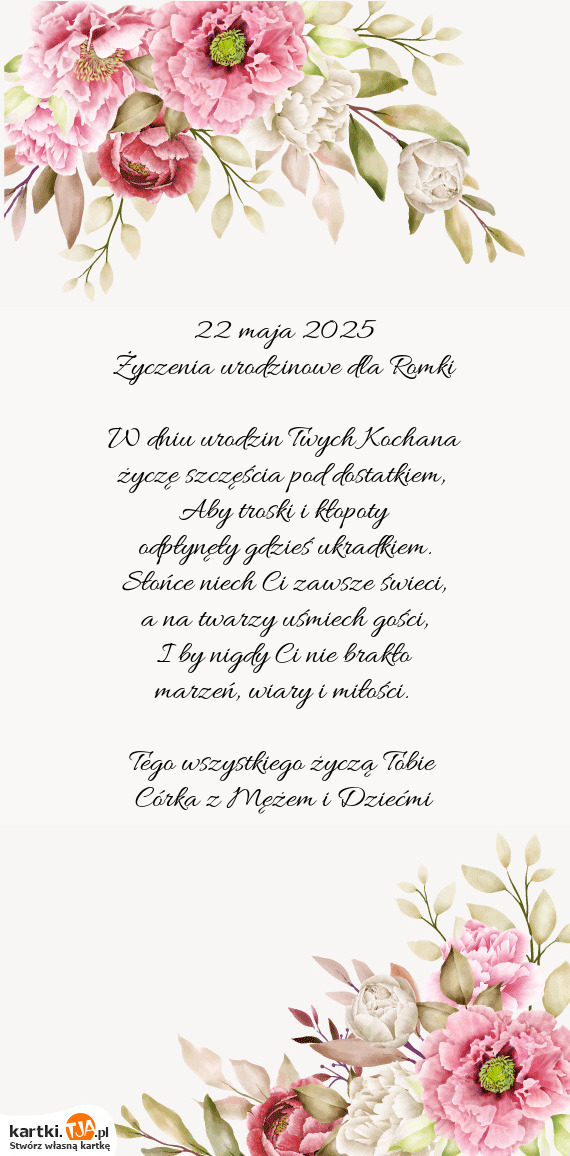 22 maja 2025
Życzenia urodzinowe dla Romki
W dniu urodzin Twych Kochana
życzę szczęścia pod dostatkiem,
Aby troski i kłopoty
odpłynęły gdzieś ukradkiem.
Słońce niech Ci zawsze świeci,
a na twarzy uśmiech gości,
I by nigdy Ci nie brakło
marzeń, wiary i miłości.
Tego wszystkiego życzą Tobie
Córka z Mężem i Dziećmi
kartki.TJA.pl
Stwórz własną kartkę